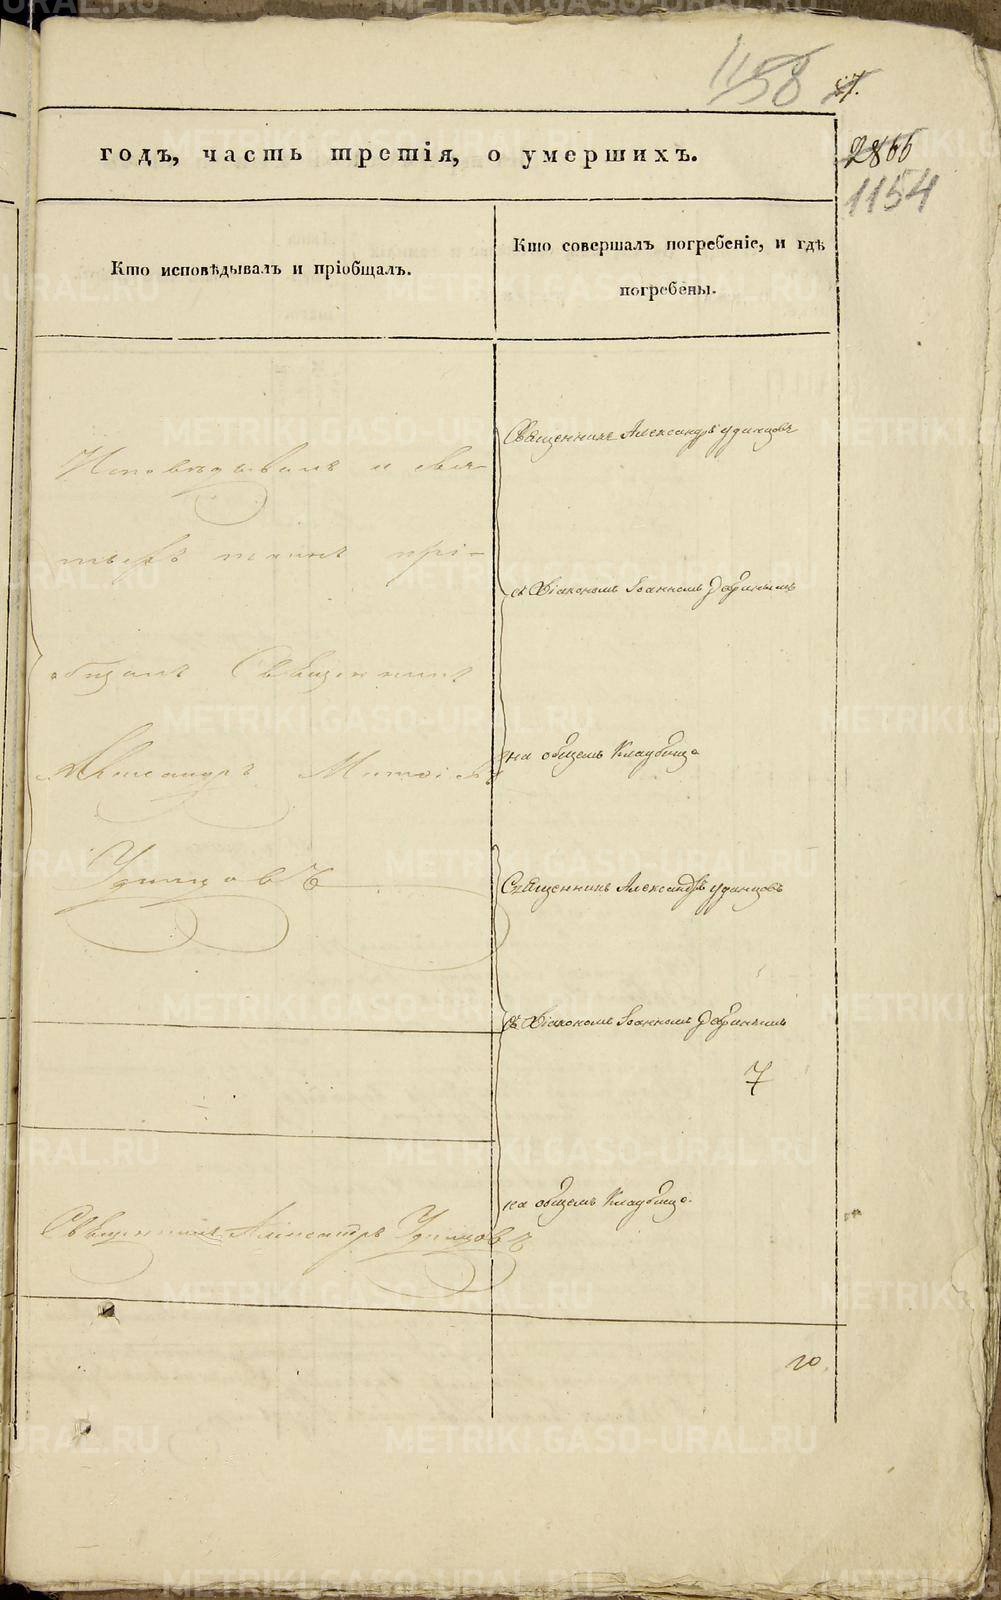 1158
годъ, часть третія, о умершихъ.
2866
1154
Кто исповѣдывалъ и пріобщалъ.
Кто совершалъ погребеніе, и гдѣ
погребены.
Исповѣдывалъ и свя-
тыхъ таинъ прі-
общалъ Священникъ
Александръ
Удинцовъ
Священникъ Александръ Удинцовъ
съ Діакономъ Іоанномъ
на общемъ Кладбище
Священникъ Александръ Удинцовъ
съ Діакономъ Іоанномъ
7
на общемъ Кладбище.
Священникъ Александръ Удинцовъ
10.
METRIKI.GASO-URAL.RU